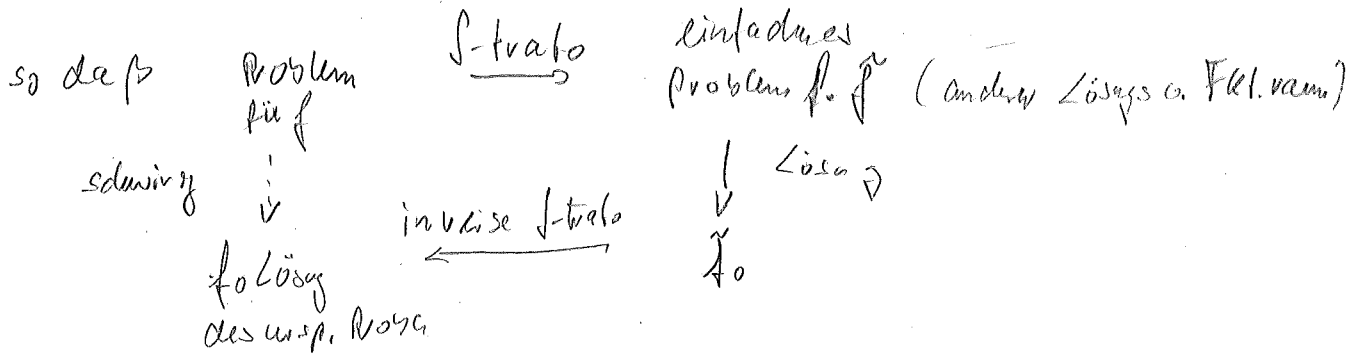 so daß Problem ∫-trafo einfacheres
für f Problem f. f̃ (anderer Lösgs o. Fkt.raum)
schwierig Lösung
inverse ∫-trafo
f₀ Lösung f̃₀
des ursp. Probl